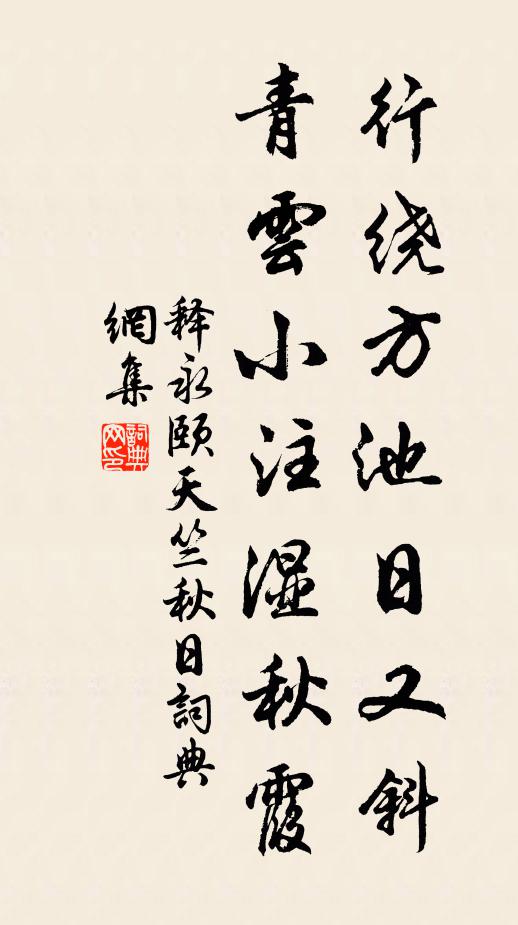 行绕方池日又斜
青雲小注湿秋霞
释永颐天竺秋日詞典
網集
詞典網印